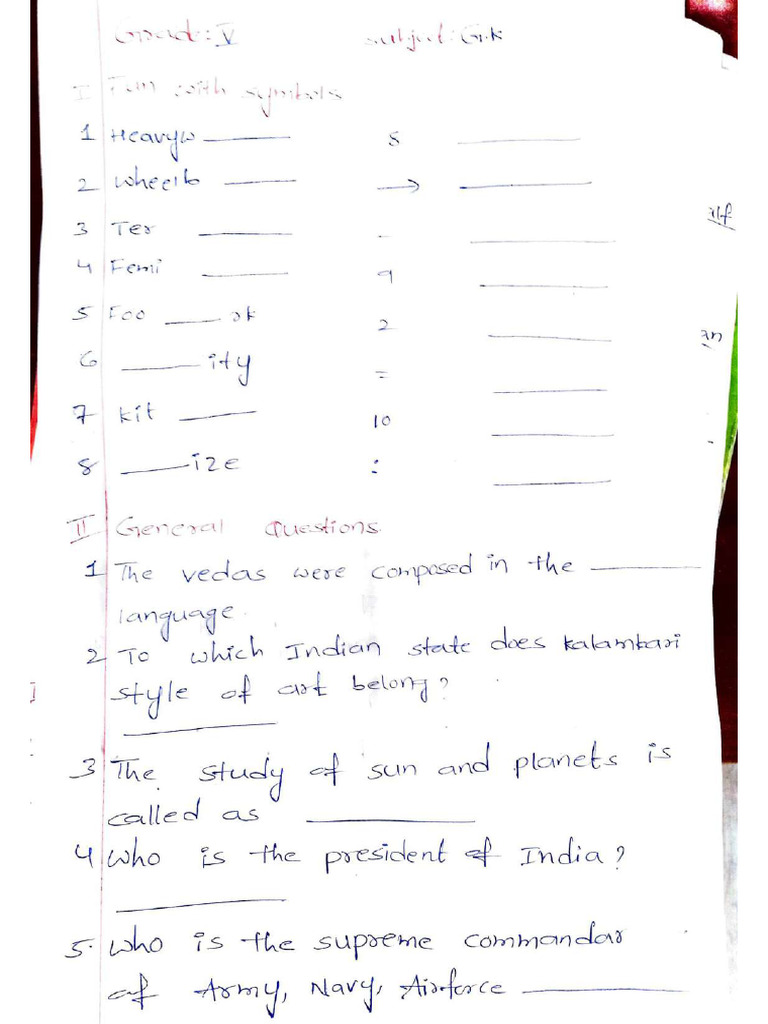 Grad: V Subject: G.K
I Fun with symbols
1 Heavyw ______ 8 ______
2 Wheelb ______ → ______
3 Ter ______ - ______
4 Femi ______ 9 ______
5 Foo ______ ok 2 ______
6 ______ ity = ______
7 kit ______ 10 ______
8 ______ ize : ______
II General Questions
1 The vedas were composed in the ______
language.
2 To which Indian state does kalamkari
style of art belong?
______
3 The study of sun and planets is
called as ______
4 Who is the president of India?
______
5. Who is the supreme commandar
of Army, Navy, Airforce ______